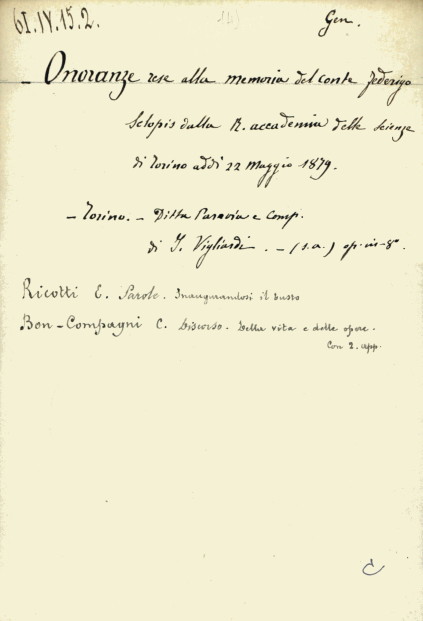 61.IV.15.2.
Gen.
— Onoranze rese alla memoria del conte Federigo
Sclopis dalla R. accademia delle scienze
di Torino addì 22 Maggio 1879.
— Torino. — Ditta Paravia e Comp.
di I. Vigliardi. — (s.a.) op-in-8°.
Ricotti E. Parole. Inaugurandosi il busto
Bon-Compagni C. Discorso. Della vita e delle opere.
Con 2. app.
C